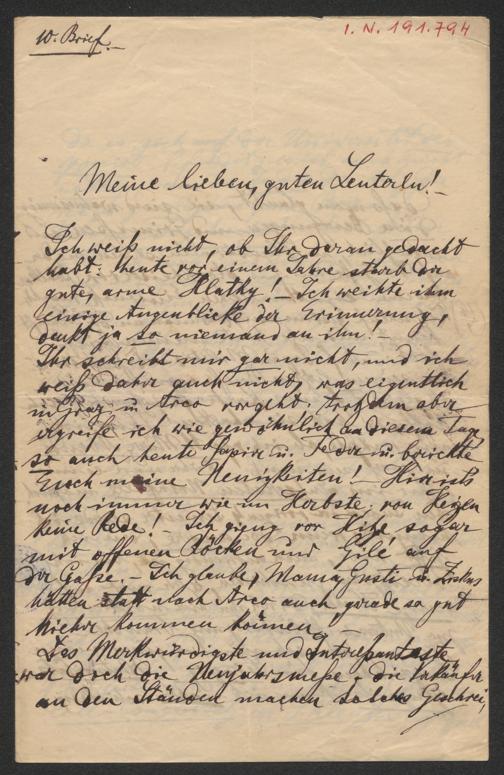 10. Brief.
I. N. 191.794
Meine lieben, guten Leuterln! –
Ich weiß nicht, ob Ihr daran gedacht
habt: heute vor einem Jahre starb der
gute, arme Hlatky! – Ich weihte ihm
einige Augenblicke der Erinnerung,
denkt ja so niemand an ihn! –
Ihr schreibt mir gar nicht, und ich
weiß daher auch nicht, was eigentlich
in Graz u. Arco vorgeht; trotzdem aber
ergreife ich wie gewöhnlich an diesem Tage
so auch heute Papier u. Feder u. berichte
Euch meine Neuigkeiten! – Hier ists
noch immer wie im Herbste, von Heizen
keine Rede! – Ich gieng vor Hitze sogar
mit offenen Röcken und Gilé auf
der Gasse. – Ich glaube, Mama, Gusti u.
hätten statt nach Arco auch gerade so gut
hieher kommen können!
Das Merkwürdigste und Interessanteste
war doch die Neujahrsmesse – die Verkäufer
an den Ständen machen solches Geschrei,